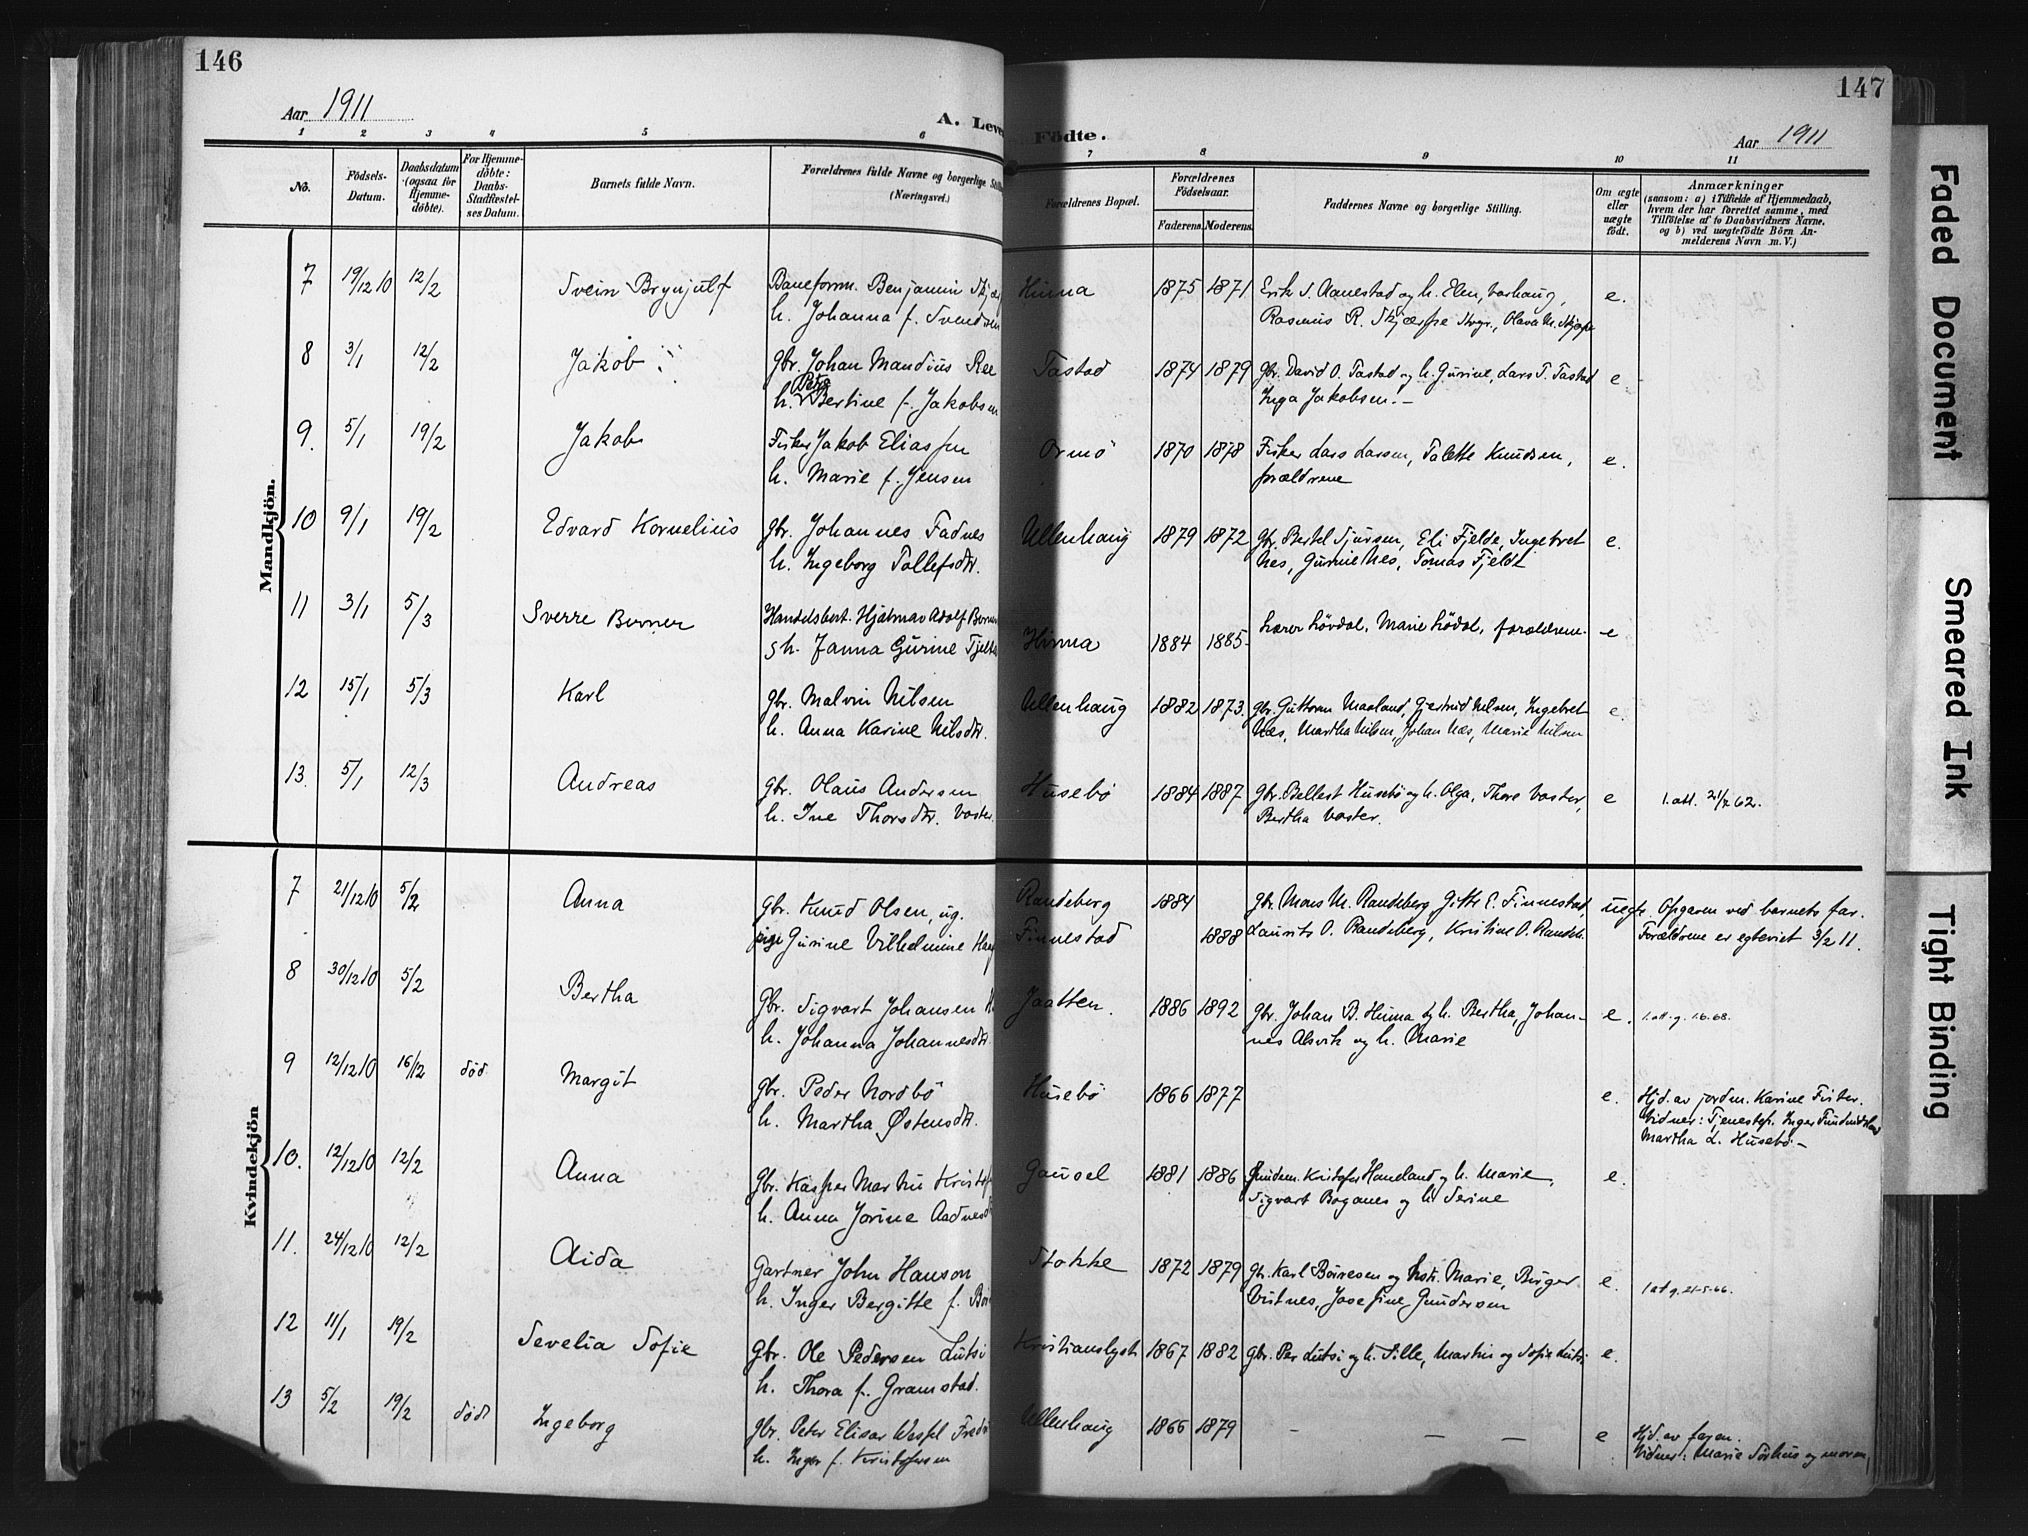 146
Aar 1911
A. Leve
1 2 3 4 5 6
No.
Födsels-
Datum.
Daabsdatum
(ogsaa for
Hjemme-
döbte).
For Hjemme-
döbte:
Daabs-
Stadfæstel-
ses Datum.
Barnets fulde Navn.
Forældrenes fulde Navne og borgerlige Still
(Næringsvei.)
Mandkjön.
7 19/12 10 12/2 Svein Brynjulf Baneform. Benjamin Skjær
h. Johanna f. Svendsen
8 3/1 12/2 Jakob gbr. Johan Mandius Ree
Petra
h. Bertine f. Jakobsen
9. 5/1 19/2 Jakob Fisker Jakob Eliassen
h. Marie f. Jensen
10 9/1 19/2 Edvard Kornelius gbr. Johannes Fadnes
h. Ingeborg Tollefsdtr.
11 3/1 5/3 Sverre Berner Handelsbest. Hjalmar Adolf Berner
h. Janna Gurine Fjelt
12 15/1 5/3 Karl gbr. Malvin Nilsen
h. Anna Karine Nilsdtr.
13. 5/1 12/3 Andreas gbr. Olaus Andersen
h. Ine Thorsdtr. Vaster.
Kvindekjön
7 21/12 10 5/2 Anna gbr. Knud Olsen, ug.
pige Gurine Vilhelmine
8 30/12 10 5/2 Bertha gbr. Sigvart Johansen
h. Johanna Johannesdtr.
9 12/12 10 16/12 död Margit gbr. Peder Nordbö
h. Martha Østensdtr.
10. 12/12 10 12/2 Anna gbr. Kasper Martin Kristof
h. Anna Jorine Aadnesd
11. 24/12 10 12/2 Aida Gartner John Hanson
h. Inger Bergitte f. Bör
12 11/1 19/2 Sevelia Sofie gbr. Ole Pedersen Lutsi
h. Thora f. Gramstad.
13 5/2 19/2 död Ingeborg gbr. Peter Elisar Fred
h. Inger f. Kristofersen
147
Födte.
Aar 1911
7 8 9 10 11
Forældrenes Bopæl.
Forældrenes
Födselsaar.
Faderens. Moderens.
Faddernes Navne og borgerlige Stilling.
Om ægte
eller
uægte
födt.
Anmærkninger
(saasom: a) i Tilfælde af Hjemmedaab,
hvem der har forrettet samme, med
Tilföielse af to Daabsvidners Navne,
og b) ved uægtefödte Börn An-
melderens Navn m. V.)
Hinna 1875 1871 Erik S. Aanestad og h. Elen, Varhaug, e.
Rasmus R. Skjærpe
Tastad 1874 1879 gbr. David O. Tastad og h. Gurine, Lars T. Tastad e.
Inga Jakobsen. –
Ormö 1870 1878 Fisker Lars Larsen, Talette Knudsen, e.
forældrene
Ullenhaug 1879 1872 gbr. Bertel Sjursen, Eli Fjelde, Ingebret e.
Nes, Gurine Nes, Tomas Fjeldt
Hinna 1884 1885 Lærer Lövdal, Marie Lödal, forældrene. e
Ullenhaug 1882 1873. gbr. Guttorm Maaland, Gjertrud Nilsen, Ingebret e.
Næs, Martha Nilsen, Johan Næs, Marie Nilsen
Husebö 1884 1887 gbr. Bellest Husebö og h. Olga, Thore Vaster, e 1. att. 62.
Bertha Vaster.
Randeberg 1884 gbr. Mons M. Randeberg Gitte E. Finnestad, uegte. Opgaven ved barnets far.
Finnestad 1888 Laurits O. Randeberg, Kristine O. Randeb. Forældrene er egteviet 3/2 11.
Jaatten. 1886 1892 gbr. Johan B. Hinna og h. Bertha, Johan- e. 1. att. g. 1.6.68.
nes Alsvik og h. Marie
Husebö 1866 1877 e. Hjd. av jordm. Karine Fister.
Vidner: Tjenestep. Inger
Martha L. Husebö –
Gausel 1881 1886 Kristofer Haneland og h. Marie, e.
Sigvart Boganes og h. Serine
Stokke 1872 1879 gbr. Karl Börresen og Marie, Birger e. 1 att g. 21-5-66.
Vistnes, Josefine Gundersen
Kristianslyst 1867 1882 gbr. Per Lutsi og h. Sille, Martin og Sofie Lutsi. e.
Ullenhaug 1866 1879 – – – e Hjd. av faren.
Vidner: Marie Sörhus og moren
Faded Document
Smeared Ink
Tight Binding